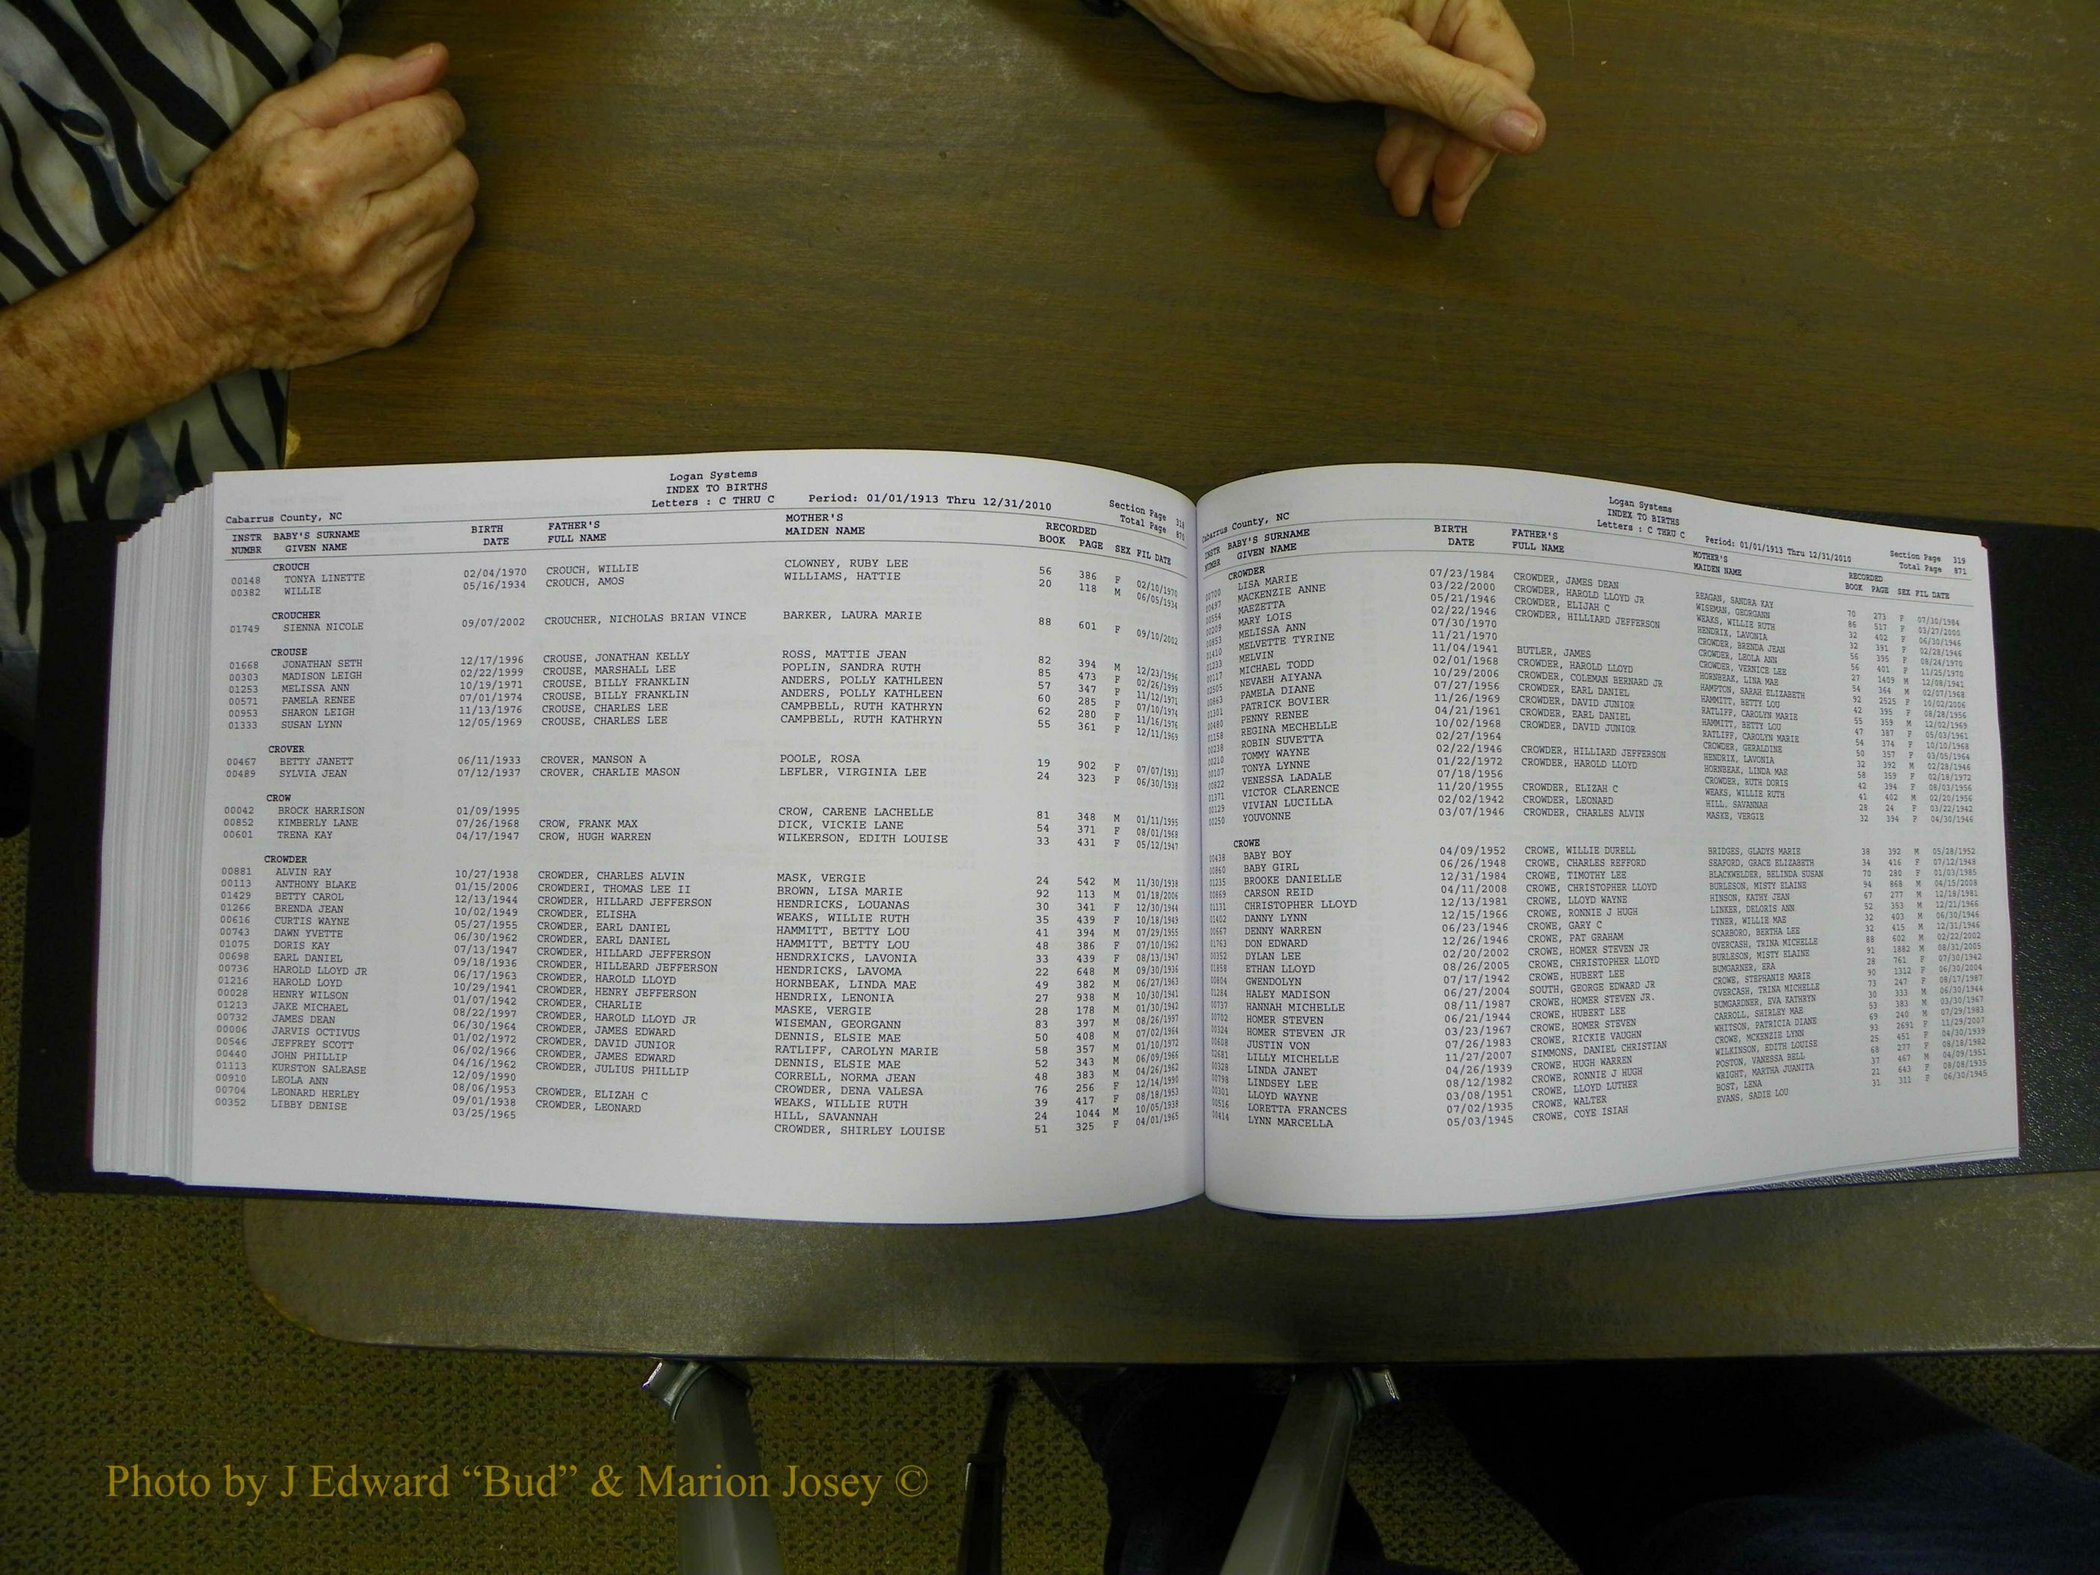 Logan Systems
INDEX TO BIRTHS
Letters : C THRU C Period: 01/01/1913 Thru 12/31/2010
Section Page 318
Total Page 870
Cabarrus County, NC
INSTR BABY'S SURNAME BIRTH FATHER'S MOTHER'S RECORDED
NUMBR GIVEN NAME DATE FULL NAME MAIDEN NAME BOOK PAGE SEX FIL DATE
CROUCH
00148 TONYA LINETTE 02/04/1970 CROUCH, WILLIE CLOWNEY, RUBY LEE 56 386 F 02/10/1970
00382 WILLIE 05/16/1934 CROUCH, AMOS WILLIAMS, HATTIE 20 118 M 06/05/1934
CROUCHER
01749 SIENNA NICOLE 09/07/2002 CROUCHER, NICHOLAS BRIAN VINCE BARKER, LAURA MARIE 88 601 F 09/10/2002
CROUSE
01668 JONATHAN SETH 12/17/1996 CROUSE, JONATHAN KELLY ROSS, MATTIE JEAN 82 394 M 12/23/1996
00303 MADISON LEIGH 02/22/1999 CROUSE, MARSHALL LEE POPLIN, SANDRA RUTH 85 473 F 02/26/1999
01253 MELISSA ANN 10/19/1971 CROUSE, BILLY FRANKLIN ANDERS, POLLY KATHLEEN 57 347 F 11/12/1971
00571 PAMELA RENEE 07/01/1974 CROUSE, BILLY FRANKLIN ANDERS, POLLY KATHLEEN 60 285 F 07/10/1974
00953 SHARON LEIGH 11/13/1976 CROUSE, CHARLES LEE CAMPBELL, RUTH KATHRYN 62 280 F 11/16/1976
01333 SUSAN LYNN 12/05/1969 CROUSE, CHARLES LEE CAMPBELL, RUTH KATHRYN 55 361 F 12/11/1969
CROVER
00467 BETTY JANETT 06/11/1933 CROVER, MANSON A POOLE, ROSA 19 902 F 07/07/1933
00489 SYLVIA JEAN 07/12/1937 CROVER, CHARLIE MASON LEFLER, VIRGINIA LEE 24 323 F 06/30/1938
CROW
00042 BROCK HARRISON 01/09/1995 CROW, CARENE LACHELLE 81 348 M 01/11/1995
00852 KIMBERLY LANE 07/26/1968 CROW, FRANK MAX DICK, VICKIE LANE 54 371 F 08/01/1968
00601 TRENA KAY 04/17/1947 CROW, HUGH WARREN WILKERSON, EDITH LOUISE 33 431 F 05/12/1947
CROWDER
00881 ALVIN RAY 10/27/1938 CROWDER, CHARLES ALVIN MASK, VERGIE 24 542 M 11/30/1938
00113 ANTHONY BLAKE 01/15/2006 CROWDERI, THOMAS LEE II BROWN, LISA MARIE 92 113 M 01/18/2006
01429 BETTY CAROL 12/13/1944 CROWDER, HILLARD JEFFERSON HENDRICKS, LOUANAS 30 341 F 12/30/1944
01266 BRENDA JEAN 10/02/1949 CROWDER, ELISHA WEAKS, WILLIE RUTH 35 439 F 10/18/1949
00616 CURTIS WAYNE 05/27/1955 CROWDER, EARL DANIEL HAMMITT, BETTY LOU 41 394 M 07/29/1955
00743 DAWN YVETTE 06/30/1962 CROWDER, EARL DANIEL HAMMITT, BETTY LOU 48 386 F 07/10/1962
01075 DORIS KAY 07/13/1947 CROWDER, HILLARD JEFFERSON HENDRXICKS, LAVONIA 33 439 F 08/13/1947
00698 EARL DANIEL 09/18/1936 CROWDER, HILLEARD JEFFERSON HENDRICKS, LAVOMA 22 648 M 09/30/1936
00736 HAROLD LLOYD JR 06/17/1963 CROWDER, HAROLD LLOYD HORNBEAK, LINDA MAE 49 382 M 06/27/1963
01216 HAROLD LOYD 10/29/1941 CROWDER, HENRY JEFFERSON HENDRIX, LENONIA 27 938 M 10/30/1941
00028 HENRY WILSON 01/07/1942 CROWDER, CHARLIE MASKE, VERGIE 28 178 M 01/30/1942
01213 JAKE MICHAEL 08/22/1997 CROWDER, HAROLD LLOYD JR WISEMAN, GEORGANN 83 397 M 08/26/1997
00732 JAMES DEAN 06/30/1964 CROWDER, JAMES EDWARD DENNIS, ELSIE MAE 50 408 M 07/02/1964
00006 JARVIS OCTIVUS 01/02/1972 CROWDER, DAVID JUNIOR RATLIFF, CAROLYN MARIE 58 357 M 01/10/1972
00546 JEFFREY SCOTT 06/02/1966 CROWDER, JAMES EDWARD DENNIS, ELSIE MAE 52 343 M 06/09/1966
00440 JOHN PHILLIP 04/16/1962 CROWDER, JULIUS PHILLIP CORRELL, NORMA JEAN 48 383 M 04/26/1962
01113 KURSTON SALEASE 12/09/1990 CROWDER, DENA VALESA 76 256 F 12/14/1990
00910 LEOLA ANN 08/06/1953 CROWDER, ELIZAH C WEAKS, WILLIE RUTH 39 417 F 08/18/1953
00704 LEONARD HERLEY 09/01/1938 CROWDER, LEONARD HILL, SAVANNAH 24 1044 M 10/05/1938
00352 LIBBY DENISE 03/25/1965 CROWDER, SHIRLEY LOUISE 51 325 F 04/01/1965
Logan Systems
INDEX TO BIRTHS
Letters : C THRU C Period: 01/01/1913 Thru 12/31/2010
Section Page 319
Total Page 871
Cabarrus County, NC
INSTR BABY'S SURNAME BIRTH FATHER'S MOTHER'S RECORDED
NUMBR GIVEN NAME DATE FULL NAME MAIDEN NAME BOOK PAGE SEX FIL DATE
CROWDER
00700 LISA MARIE 07/23/1984 CROWDER, JAMES DEAN REAGAN, SANDRA KAY 70 273 F 07/30/1984
00497 MACKENZIE ANNE 03/22/2000 CROWDER, HAROLD LLOYD JR WISEMAN, GEORGANN 86 517 F 03/27/2000
00554 MAEZETTA 05/21/1946 CROWDER, ELIJAH C WEAKS, WILLIE RUTH 32 402 F 06/30/1946
00209 MARY LOIS 02/22/1946 CROWDER, HILLIARD JEFFERSON HENDRIX, LAVONIA 32 391 F 02/28/1946
00853 MELISSA ANN 07/30/1970 CROWDER, BRENDA JEAN 56 395 F 08/24/1970
01410 MELVETTE TYRINE 11/21/1970 CROWDER, LEOLA ANN 56 401 F 11/25/1970
01233 MELVIN 11/04/1941 BUTLER, JAMES CROWDER, VERNICE LEE 27 1409 M 12/08/1941
00117 MICHAEL TODD 02/01/1968 CROWDER, HAROLD LLOYD HORNBEAK, LINA MAE 54 364 M 02/07/1968
02505 NEVAEH AIYANA 10/29/2006 CROWDER, COLEMAN BERNARD JR HAMPTON, SARAH ELIZABETH 92 2525 F 10/02/2006
00863 PAMELA DIANE 07/27/1956 CROWDER, EARL DANIEL HAMMITT, BETTY LOU 42 395 F 08/28/1956
01301 PATRICK BOVIER 11/26/1969 CROWDER, DAVID JUNIOR RATLIFF, CAROLYN MARIE 55 359 M 12/02/1969
00480 PENNY RENEE 04/21/1961 CROWDER, EARL DANIEL HAMMITT, BETTY LOU 47 387 F 05/03/1961
01158 REGINA MECHELLE 10/02/1968 CROWDER, DAVID JUNIOR RATLIFF, CAROLYN MARIE 54 374 F 10/10/1968
00238 ROBIN SUVETTA 02/27/1964 CROWDER, GERALDINE 50 357 F 03/05/1964
00210 TOMMY WAYNE 02/22/1946 CROWDER, HILLIARD JEFFERSON HENDRIX, LAVONIA 32 392 M 02/28/1946
00107 TONYA LYNNE 01/22/1972 CROWDER, HAROLD LLOYD HORNBEAK, LINDA MAE 58 359 F 02/18/1972
00822 VENESSA LADALE 07/18/1956 CROWDER, RUTH DORIS 42 394 F 08/03/1956
01371 VICTOR CLARENCE 11/20/1955 CROWDER, ELIZAH C WEAKS, WILLIE RUTH 41 402 M 02/20/1956
00129 VIVIAN LUCILLA 02/02/1942 CROWDER, LEONARD HILL, SAVANNAH 28 24 F 03/22/1942
00250 YOUVONNE 03/07/1946 CROWDER, CHARLES ALVIN MASKE, VERGIE 32 394 F 04/30/1946
CROWE
00438 BABY BOY 04/09/1952 CROWE, WILLIE DURELL BRIDGES, GLADYS MARIE 38 392 M 05/28/1952
00860 BABY GIRL 06/26/1948 CROWE, CHARLES REFFORD SEAFORD, GRACE ELIZABETH 34 416 F 07/12/1948
01235 BROOKE DANIELLE 12/31/1984 CROWE, TIMOTHY LEE BLACKWELDER, BELINDA SUSAN 70 280 F 01/03/1985
00869 CARSON REID 04/11/2008 CROWE, CHRISTOPHER LLOYD BURLESON, MISTY ELAINE 94 868 M 04/15/2008
01131 CHRISTOPHER LLOYD 12/13/1981 CROWE, LLOYD WAYNE HINSON, KATHY JEAN 67 277 M 12/18/1981
01402 DANNY LYNN 12/15/1966 CROWE, RONNIE J HUGH LINKER, DELORIS ANN 52 353 M 12/21/1966
00667 DENNY WARREN 06/23/1946 CROWE, GARY C TYNER, WILLIE MAE 32 403 M 06/30/1946
01763 DON EDWARD 12/26/1946 CROWE, PAT GRAHAM SCARBORO, BERTHA LEE 32 415 M 12/31/1946
00352 DYLAN LEE 02/20/2002 CROWE, HOMER STEVEN JR OVERCASH, TRINA MICHELLE 88 602 M 02/22/2002
01858 ETHAN LLOYD 08/26/2005 CROWE, CHRISTOPHER LLOYD BURLESON, MISTY ELAINE 91 1882 M 08/31/2005
00804 GWENDOLYN 07/17/1942 CROWE, HUBERT LEE BUMGARNER, ERA 28 761 F 07/30/1942
01284 HALEY MADISON 06/27/2004 SOUTH, GEORGE EDWARD JR CROWE, STEPHANIE MARIE 90 1312 F 06/30/2004
00737 HANNAH MICHELLE 08/11/1987 CROWE, HOMER STEVEN JR. OVERCASH, TRINA MICHELLE 73 247 F 08/17/1987
00702 HOMER STEVEN 06/21/1944 CROWE, HUBERT LEE BUMGARDNER, EVA KATHRYN 30 333 M 06/30/1944
00324 HOMER STEVEN JR 03/23/1967 CROWE, HOMER STEVEN CARROLL, SHIRLEY MAE 53 383 M 03/30/1967
00608 JUSTIN VON 07/26/1983 CROWE, RICKIE VAUGHN WHITSON, PATRICIA DIANE 69 240 M 07/29/1983
02681 LILLY MICHELLE 11/27/2007 SIMMONS, DANIEL CHRISTIAN CROWE, MCKENZIE LYNN 93 2691 F 11/29/2007
00328 LINDA JANET 04/26/1939 CROWE, HUGH WARREN WILKINSON, EDITH LOUISE 25 451 F 04/30/1939
00798 LINDSEY LEE 08/12/1982 CROWE, RONNIE J HUGH POSTON, VANESSA BELL 68 277 F 08/18/1982
00301 LLOYD WAYNE 03/08/1951 CROWE, LLOYD LUTHER WRIGHT, MARTHA JUANITA 37 467 M 04/09/1951
00516 LORETTA FRANCES 07/02/1935 CROWE, WALTER BOST, LENA 21 643 F 08/08/1935
00414 LYNN MARCELLA 05/03/1945 CROWE, COYE ISIAH EVANS, SADIE LOU 31 311 F 06/30/1945
Photo by J Edward “Bud” & Marion Josey ©